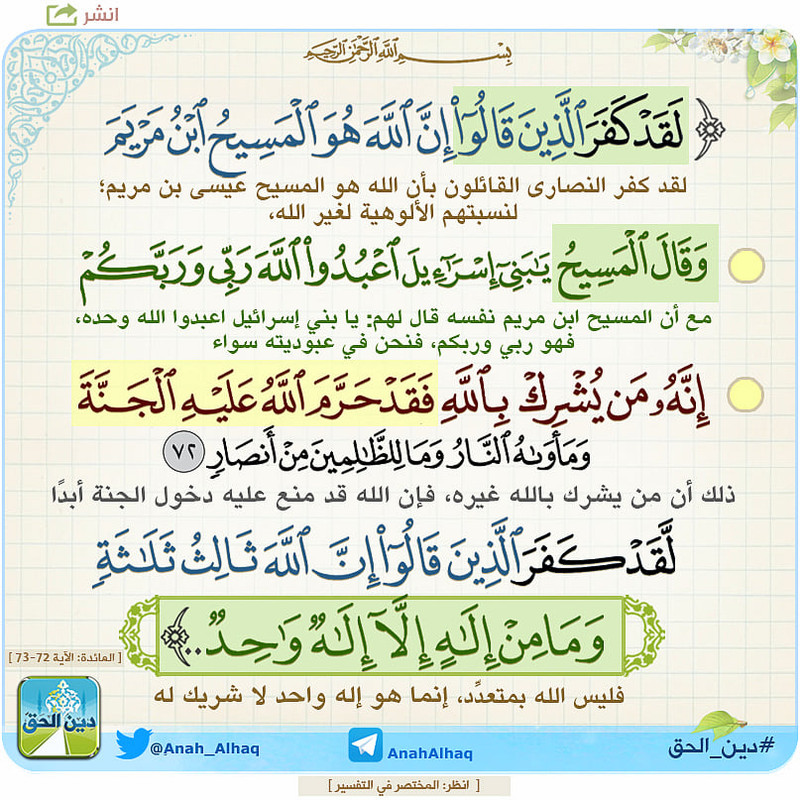 انشر
بِسْمِ اللَّهِ الرَّحْمَنِ الرَّحِيمِ
﴿لَقَدْ كَفَرَ ٱلَّذِينَ قَالُوٓا۟ إِنَّ ٱللَّهَ هُوَ ٱلْمَسِيحُ ٱبْنُ مَرْيَمَ
لقد كفر النصارى القائلون بأن الله هو المسيح عيسى بن مريم؛
لنسبتهم الألوهية لغير الله،
وَقَالَ ٱلْمَسِيحُ يَٰبَنِىٓ إِسْرَٰٓءِيلَ ٱعْبُدُوا۟ ٱللَّهَ رَبِّى وَرَبَّكُمْ
مع أن المسيح ابن مريم نفسه قال لهم: يا بني إسرائيل اعبدوا الله وحده،
فهو ربي وربكم، فنحن في عبوديته سواء
إِنَّهُۥ مَن يُشْرِكْ بِٱللَّهِ فَقَدْ حَرَّمَ ٱللَّهُ عَلَيْهِ ٱلْجَنَّةَ
وَمَأْوَىٰهُ ٱلنَّارُ وَمَا لِلظَّٰلِمِينَ مِنْ أَنصَارٍ ٧٢
ذلك أن من يشرك بالله غيره، فإن الله قد منع عليه دخول الجنة أبدًا
لَّقَدْ كَفَرَ ٱلَّذِينَ قَالُوٓا۟ إِنَّ ٱللَّهَ ثَالِثُ ثَلَٰثَةٍ
وَمَا مِنْ إِلَٰهٍ إِلَّآ إِلَٰهٌ وَٰحِدٌ..﴾
[ المائدة: الآية 72-73 ]
فليس الله بمتعدِّد، إنما هو إله واحد لا شريك له
دين الحق
@Anah_Alhaq
AnahAlhaq
#دين_الحق
[ انظر: المختصر في التفسير ]